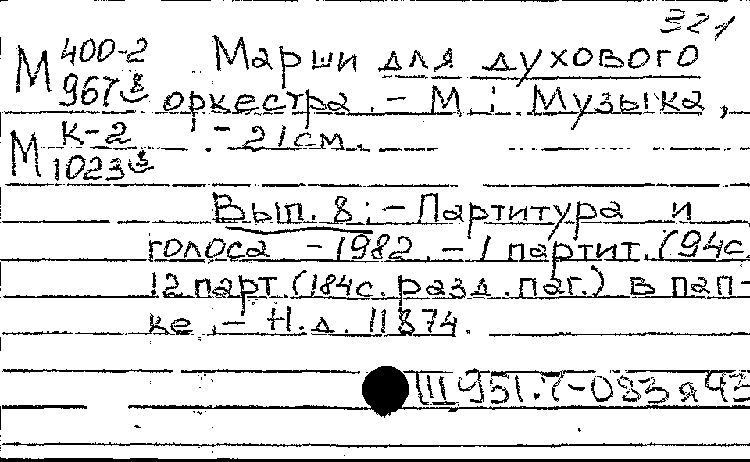 321
М 400-2 Марши для духового
967 8 оркестра. - М.: Музыка,
М К-2 . - 21 см.
1023 8
Вып. 8: - Партитура и
голоса - 1982. - 1 партит. (94с.
12 парт. (184с. разд. паг.) в пап-
ке. - Н.д. 11874.
Щ951.7-083я43